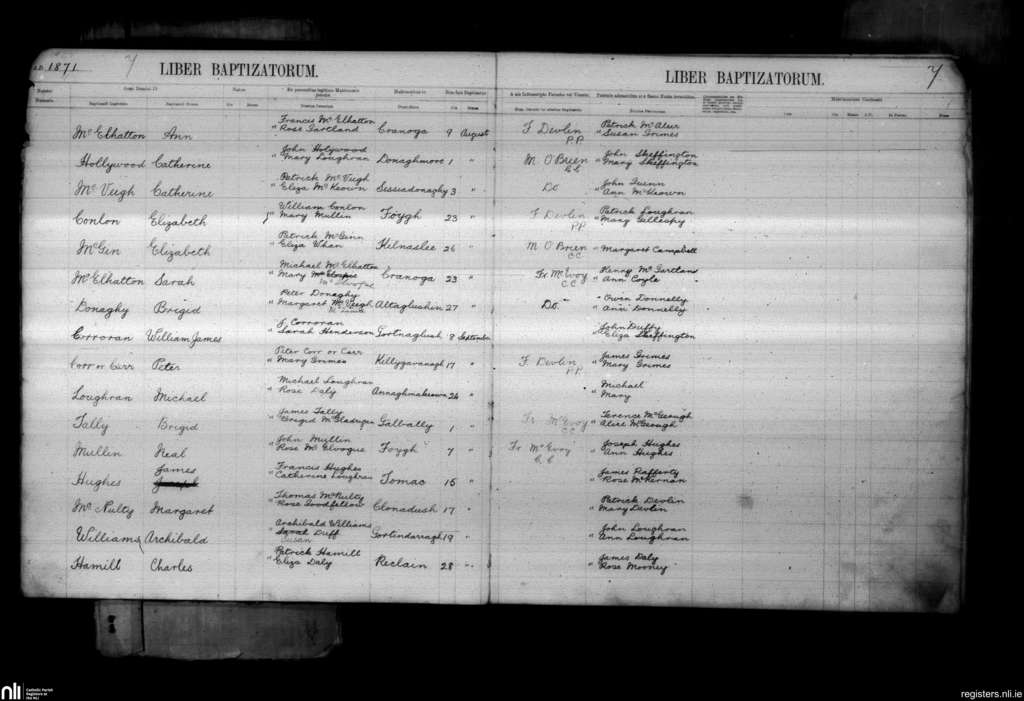 A.D. 1871 7 LIBER BAPTIZATORUM. LIBER BAPTIZATORUM. 7
McElhatton Ann Francis McElhatton
" Rose Gartland Cranoga 9 August F Devlin P.P. Patrick McAleer
" Susan Grimes
Hollywood Catherine John Holywood
" Mary Loughran Donaghmore 1 " M O'Brien C.C. John Skeffington
" Mary Skeffington
McVeigh Catherine Patrick McVeigh
" Eliza McKeown Sessiadonaghy 3 " Do John Quinn
" Ann McKeown
Conlon Elizabeth William Conlon
" Mary Mullin Foygh 23 " F Devlin P.P. Patrick Loughran
" Mary Gillespy
McGin Elizabeth Patrick McGinn
" Eliza Whan Kilnaslee 26 " M O'Brien C.C. " Margaret Campbell
McElhatton Sarah Michael McElhatton
" Mary Cranoga 23 " Fr. McEvoy C.C. Henry McGartland
" Ann Coyle
Donaghy Brigid Peter Donaghy
" Margaret McVeigh Altaglushin 27 " Do. Owen Donnelly
" Ann Donnelly
Corroran William James J. Corroran
" Sarah Henderson Gortnaglush 8 September John Duffy
" Eliza Skeffington
Corr or Carr Peter Peter Corr or Carr
" Mary Grimes Killygavanagh 17 " F Devlin P.P. James Grimes
" Mary Grimes
Loughran Michael Michael Loughran
" Rose Daly Annaghmakeown 24 " " Michael
" Mary
Tally Brigid James Tally
" Brigid McGladigan Galbally 1 " Fr McEvoy C.C. Terence McGeough
" Alice McGeough
Mullin Neal John Mullin
" Rose McElvogue Foygh 7 " Fr McEvoy C.C. Joseph Hughes
" Ann Hughes
Hughes James Francis Hughes
" Catherine Loughran Tomac 15 " James Rafferty
" Rose McKernan
McNulty Margaret Thomas McNulty
" Rose Goodfellow Clonadush 17 " Patrick Devlin
" Mary Devlin
Williams Archibald Archibald Williams
" Sarah Duff
Susan Gortindarragh 19 " John Loughran
" Ann Loughran
Hamill Charles Patrick Hamill
" Eliza Daly Reclain 28 " James Daly
" Rose Mooney
nli Catholic Parish Registers at the NLI
registers.nli.ie